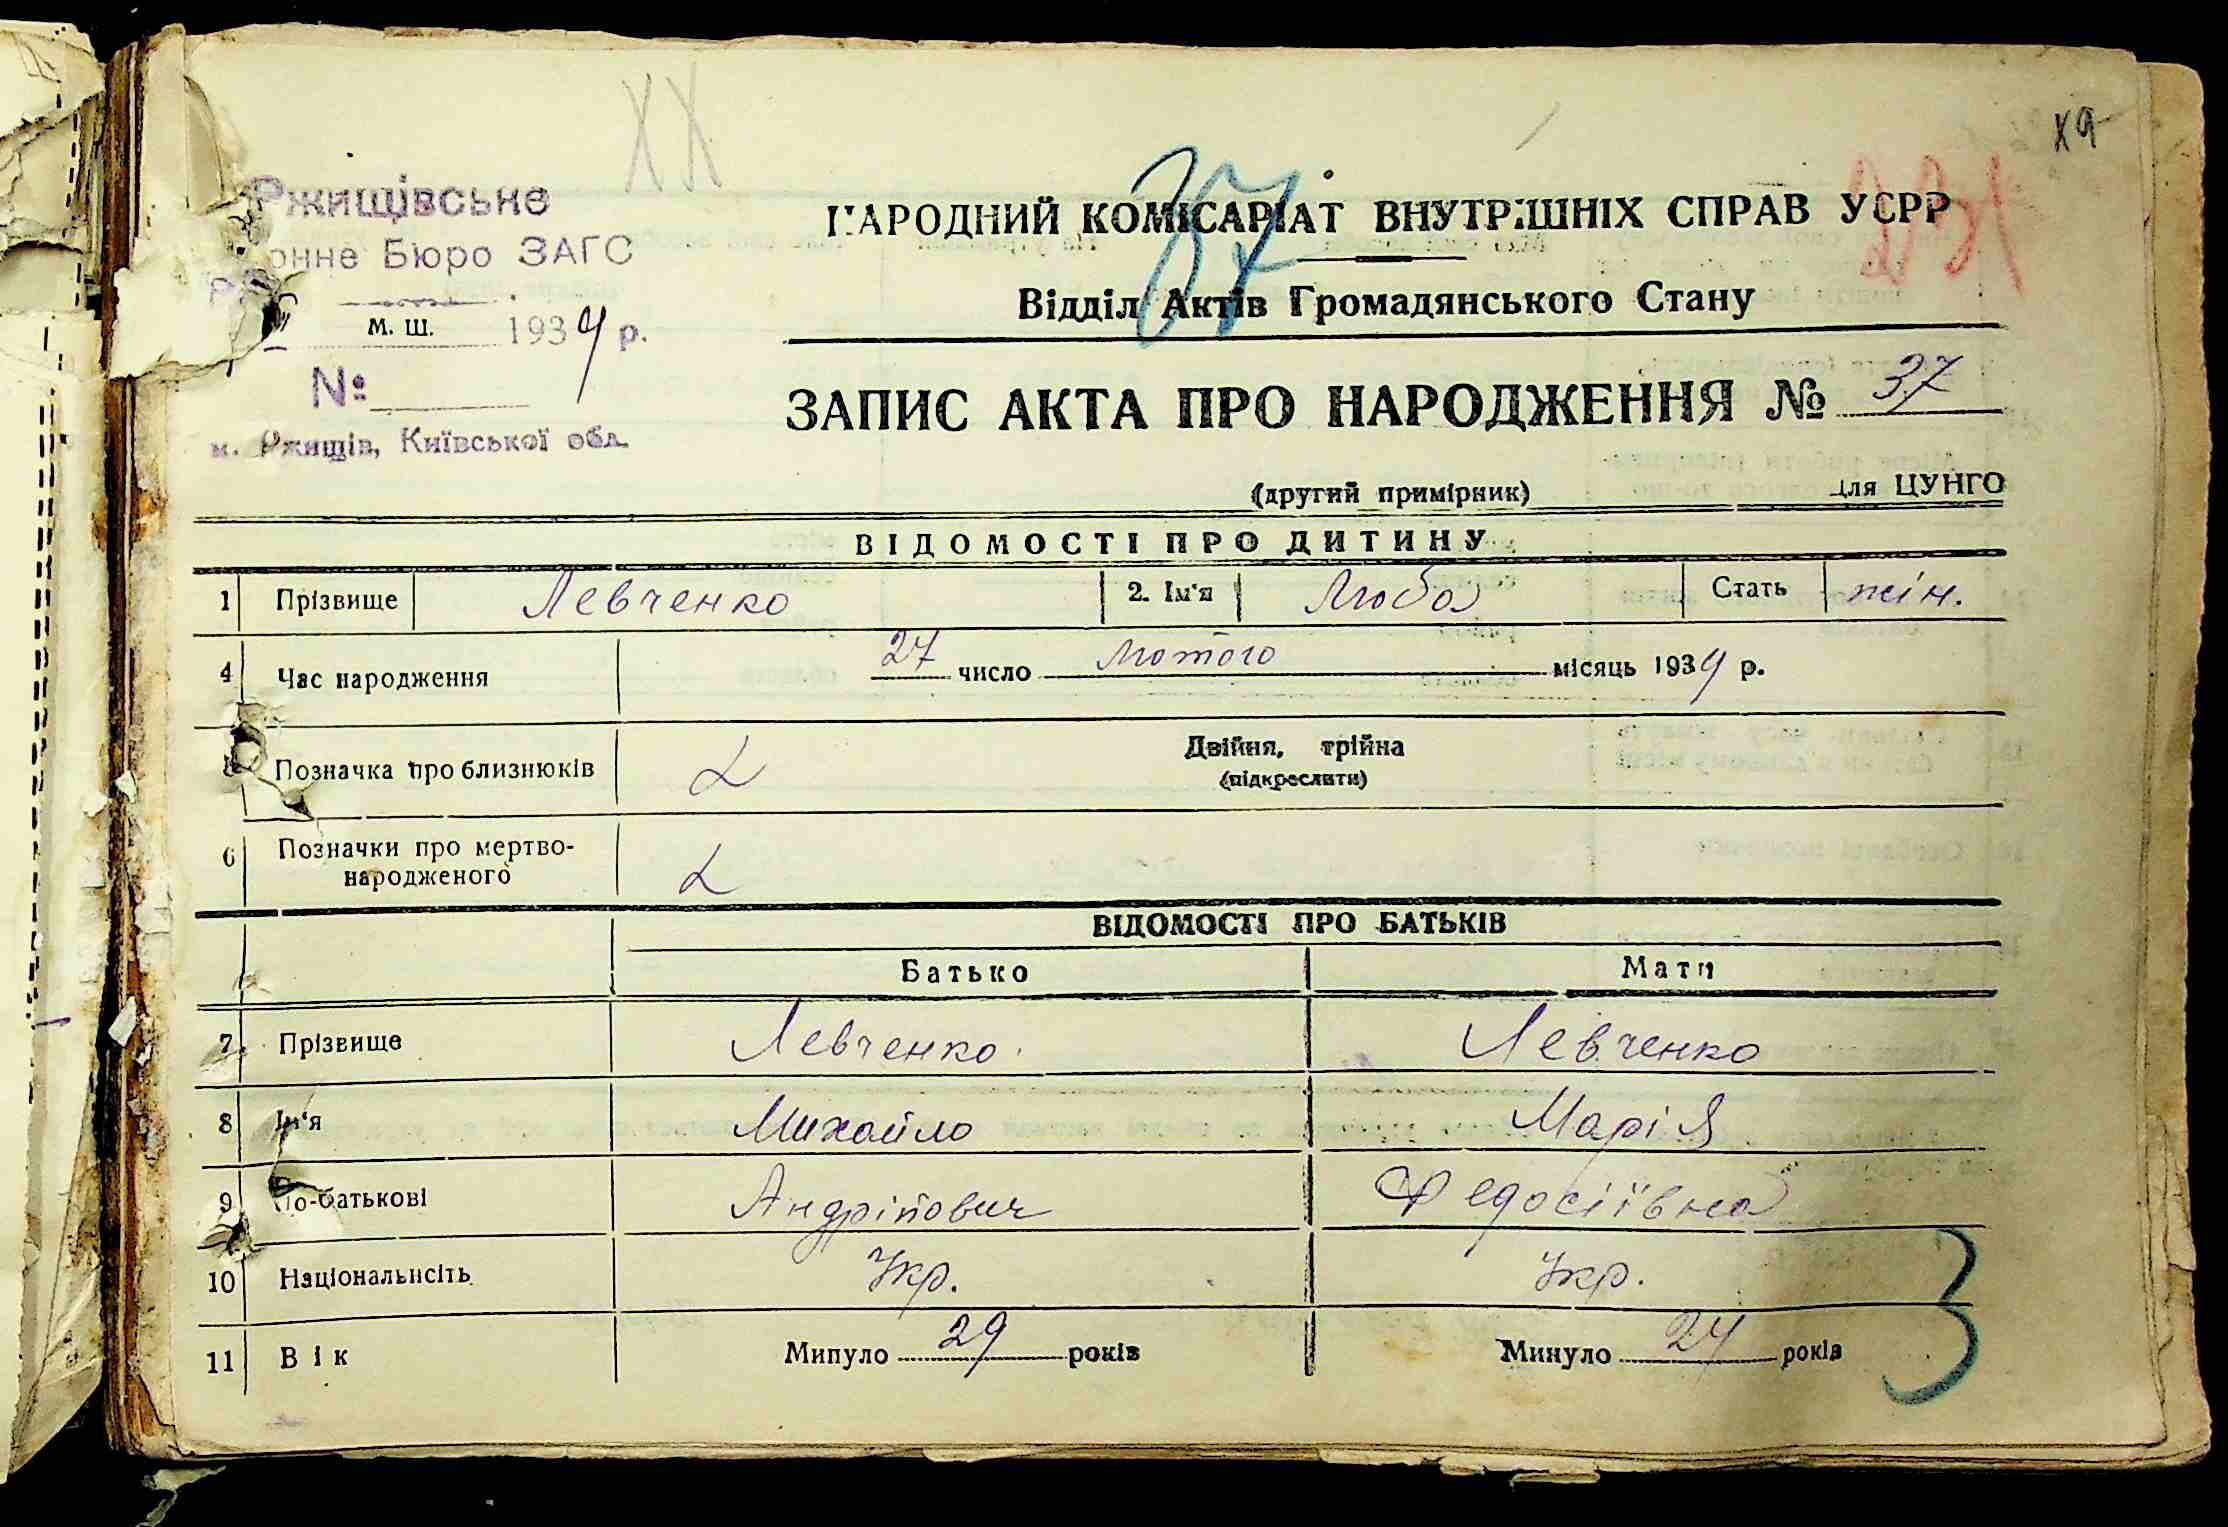 ХХ
Ржищівське
онне Бюро ЗАГС
м. Ш. 1939 р.
№
м. Ржищів, Київської обл.
37
231
НАРОДНИЙ КОМІСАРІАТ ВНУТРІШНІХ СПРАВ УСРР
Відділ Актів Громадянського Стану
ЗАПИС АКТА ПРО НАРОДЖЕННЯ № 37
(другий примірник) для ЦУНГО
ВІДОМОСТІ ПРО ДИТИНУ
1 Прізвище Левченко 2. Ім'я Люба Стать жін.
4 Час народження 27 число лютого місяць 1939 р.
5 Позначка про близнюків Двійня, трійна
(підкреслити)
6 Позначки про мертво-
народженого
ВІДОМОСТІ ПРО БАТЬКІВ
Батько Мати
7 Прізвище Левченко Левченко
8 Ім'я Михайло Марія
9 По-батькові Андрійович Федосіївна
10 Національнсіть Укр. Укр.
11 Вік Минуло 29 років Минуло 24 років
3